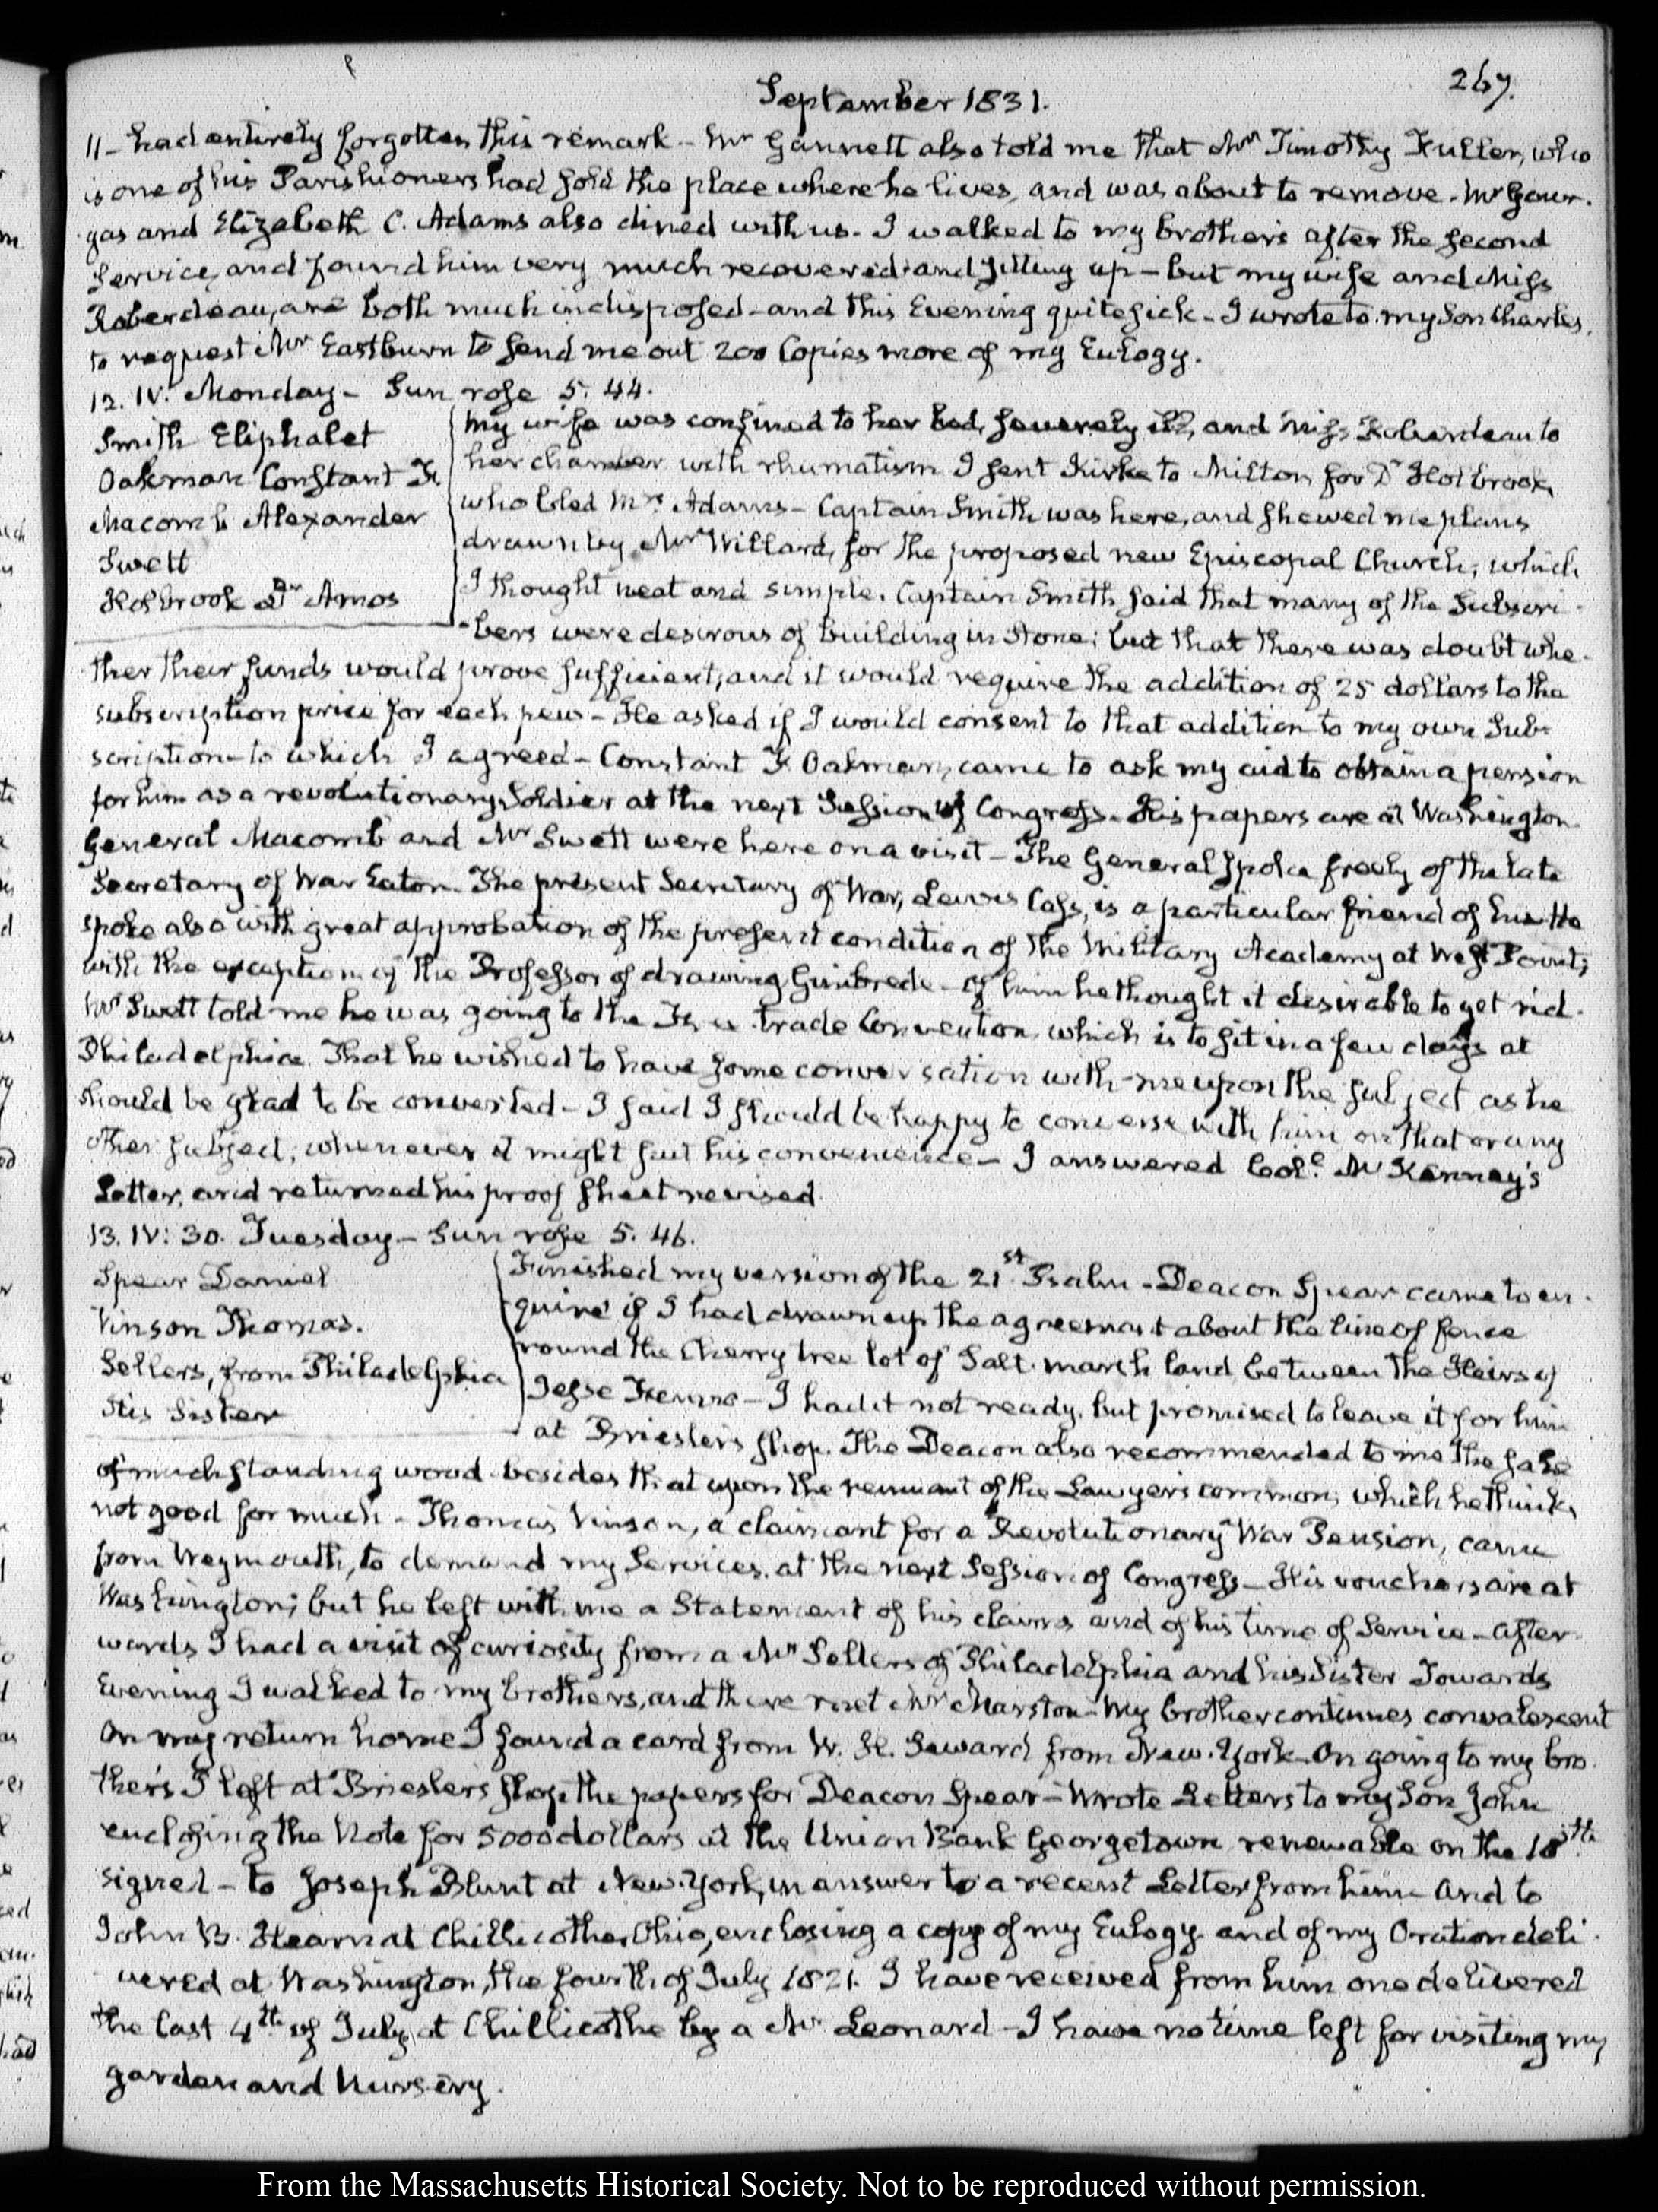 267.
September 1831.
11 - had entirely forgotten this remark - Mr Gannett also told me that Mr Timothy Fuller, who
is one of his Parishioners had sold the place where he lives, and was about to remove. Mr Gour-
gas and Elizabeth C. Adams also dined with us. I walked to my brother's after the second
Service, and found him very much recovered and sitting up - but my wife and Miss
Roberdeau, are both much indisposed - and this Evening quite sick - I wrote to my Son Charles,
to request Mr Eastburn to send me out 200 Copies more of my Eulogy.
12. IV. Monday - Sun rose 5. 44.
Smith Eliphalet
Oakman Constant F.
Macomb Alexander
Swett
Holbrook Dr Amos
My wife was confined to her bed, severely ill, and Miss Roberdeau to
her chamber with rhumatism I sent Kirke to Milton for Dr Holbrook,
who bled Mrs Adams - Captain Smith was here, and shewed me plans
drawn by Mr Willard, for the proposed new Episcopal Church, which
I thought neat and simple. Captain Smith said that many of the Subscri-
-bers were desirous of building in Stone; but that there was doubt whe-
ther their funds would prove sufficient; and it would require the addition of 25 dollars to the
subscription price for each pew - He asked if I would consent to that addition to my own Sub-
scription - to which I agreed - Constant F. Oakman, came to ask my aid to obtain a pension
for him as a revolutionary Soldier at the next Session of Congress. His papers are at Washington
General Macomb and Mr Swett were here on a visit - The General spoke freely of the late
Secretary of War Eaton. The present Secretary of War, Lewis Cass, is a particular friend of his He
spoke also with great approbation of the present condition of the Military Academy at West Point;
with the exception of the Professor of drawing Guibrede - of him he thought it desirable to get rid.
Mr Swett told me he was going to the Free trade Convention, which is to sit in a few days at
Philadelphia. That he wished to have some conversation with me upon the subject as he
should be glad to be converted - I said I should be happy to converse with him on that or any
other subject, whenever it might suit his convenience - I answered Col.o McKenney's
Letter, and returned his proof sheet revised.
13. IV: 30. Tuesday - Sun rose 5. 46.
Spear Daniel
Vinson Thomas.
Sellers, from Philadelphia
His Sister
Finished my version of the 21st Psalm - Deacon Spear came to en-
quire if I had drawn up the agreement about the line of fence
round the Cherry tree lot of Salt-marsh land between the Heirs of
Jesse Fenno - I had it not ready, but promised to leave it for him
at Briesler's shop. The Deacon also recommended to me the sale
of much standing wood besides that upon the remnant of the Lawyer's common, which he thinks
not good for much - Thomas Vinson, a claimant for a Revolutionary War Pension, came
from Weymouth, to demand my Services at the next Session of Congress - His vouchers are at
Washington; but he left with me a Statement of his claims and of his time of Service - After-
wards I had a visit of curiosity from a Mr Sellers of Philadelphia and his Sister Towards
Evening I walked to my brother's, and there met Mr Marston - My brother continues convalescent
On my return home I found a card from W. H. Seward from New-York - On going to my bro-
ther's I left at Briesler's shop the papers for Deacon Spear - Wrote Letters to my Son John
enclosing the Note for 5000 dollars at the Union Bank Georgetown renewable on the 18th
signed - to Joseph Blunt at New-York, in answer to a recent Letter from him - And to
John B. Stearn at Chillicothe, Ohio, enclosing a copy of my Eulogy and of my Oration deli-
vered at Washington, the fourth of July 1821. I have received from him one delivered
the last 4th of July, at Chillicothe by a Mr Leonard - I have no time left for visiting my
garden and Nursery.
From the Massachusetts Historical Society. Not to be reproduced without permission.